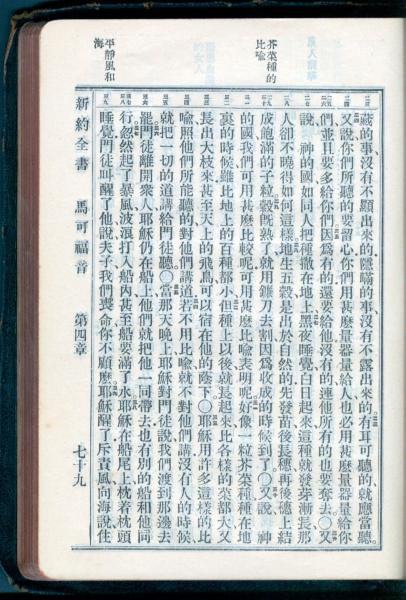 芥菜種的
比喻
平靜風和
海
藏的事、沒有不顯出來的、隱瞞的事、沒有不露出來的、有耳可聽的、就應當聽。
又說、你們所聽的要留心、你們用甚麼量器量給人、也必用甚麼量器量給你
們、並且要多給你們、因為有的還要給他、沒有的連他所有的也要奪去。〇又
說、神的國、如同人把種撒在地上、黑夜睡覺、白日起來、這種就發芽漸長、那
人卻不曉得如何這樣、地生五穀、是出於自然的、先發苗、後長穗、再後穗上結
成飽滿的子粒、穀既熟了、就用鐮刀去割、因為收成的時候到了。〇又說、神
的國、我們可用甚麼比較呢、可用甚麼比喻表明呢、好像一粒芥菜種、種在地
裏的時候、雖比地上的百種都小、但種上以後、就長起來、比各樣的菜都大、又
長出大枝來、甚至天上的飛鳥、可以宿在他的蔭下。〇耶穌用許多這樣的比
喻、照他們所能聽的、對他們講道、若不用比喻、就不對他們講、沒有人的時候、
就把一切的道、講給門徒聽。〇當那天晚上、耶穌對門徒說、我們渡到那邊去
罷、門徒離開眾人、耶穌仍在船上、他們就把他一同帶去、也有別的船和他同
行、忽然起了暴風、波浪打入船內、甚至船要滿了水、耶穌在船尾上、枕着枕頭
睡覺、門徒叫醒了他、說、夫子、我們喪命、你不顧麼、耶穌醒了、斥責風、向海說、住
新約全書 馬可福音 第四章 七十九